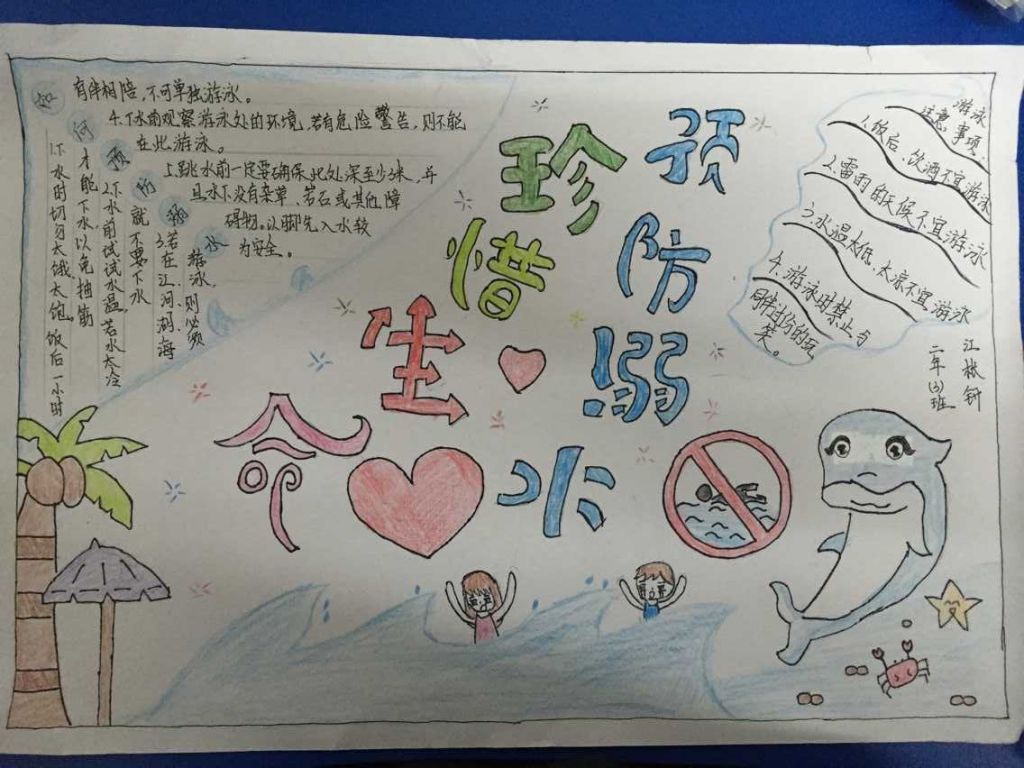 如何预防溺水
1.下水时切勿太饿、太饱。饭后一小时
才能下水,以免抽筋
2.下水前试试水温,若水太冷
就不要下水
3.若在江、河、湖、海
游泳,则必须
有伴相陪,不可单独游泳。
4.下水前观察游泳处的环境,若有危险警告,则不能
在此游泳。
5.跳水前一定要确保此处深至少米,并
且水下没有杂草、岩石或其他障
碍物。以脚先入水较
为安全。
珍惜生命
预防溺水
游泳
注意事项:
1.饭后、饮酒不宜游泳
2.雷雨的天候不宜游泳
3.水温太低、太凉不宜游泳
4.游泳时禁止与
同伴过份的玩
笑。
二年(3)班